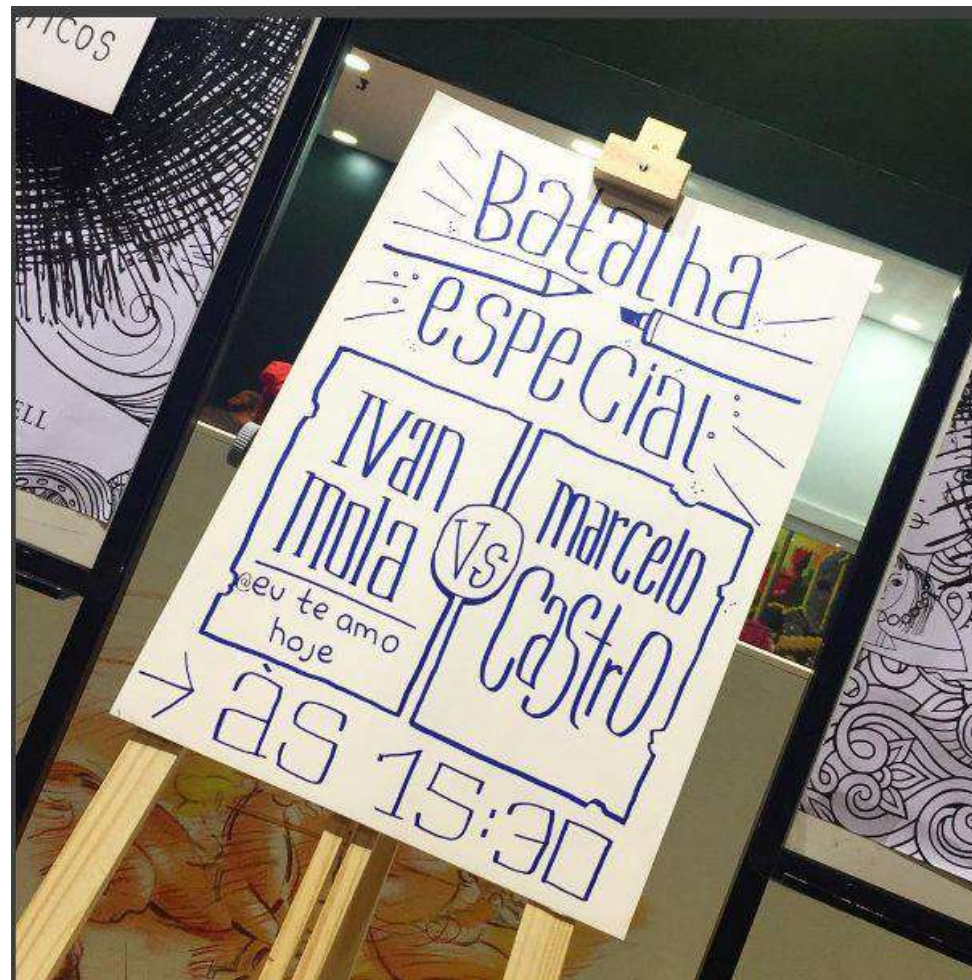 Batalha
especial
Ivan
Mola
@eu te amo
hoje
Vs
marcelo
CaStrO
→ às 15:30
ELL